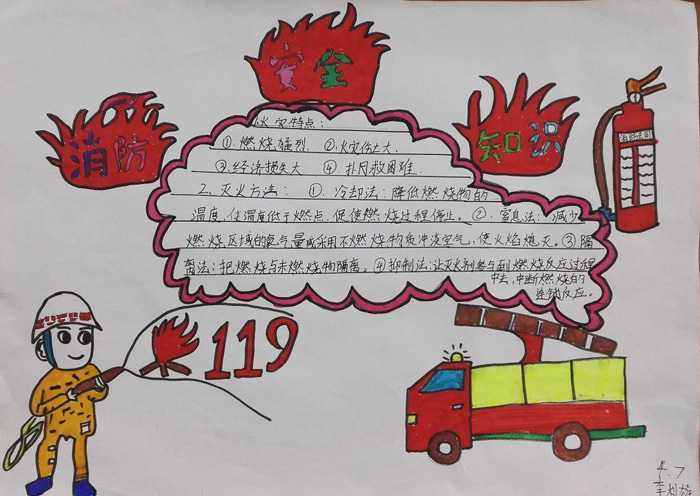 消防
安全
知识
火灾特点:
①燃烧猛烈. ②火灾伤亡大.
③.经济损失大 ④.扑月救困难.
2.灭火方法: ①.冷却法:降低燃烧物的
温度,使温度低于燃点,促使燃烧过程停止。②.窒息法:减少
燃烧区域的氧气量或采用不燃烧物质冲淡空气,使火焰熄灭。③隔
离法:把燃烧与未燃烧物隔离。④抑制法:让灭火剂参与到燃烧反应过程
中去,中断燃烧的
连锁反应。
119
4.7
李